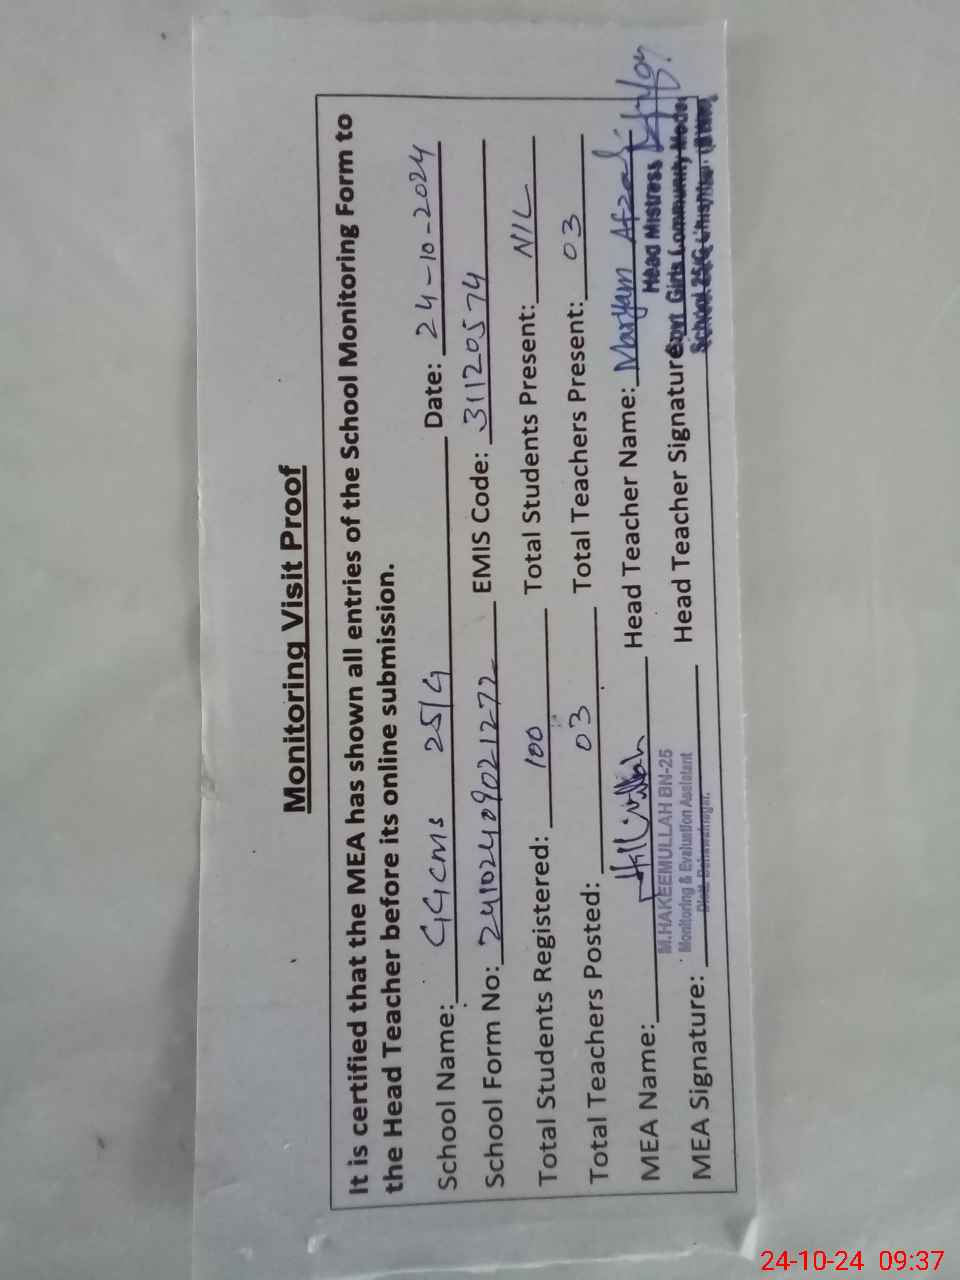 Monitoring Visit Proof
It is certified that the MEA has shown all entries of the School Monitoring Form to
the Head Teacher before its online submission.
School Name: GGCMS 25/G Date: 24-10-2024
School Form No: 24102409021272 EMIS Code: 31120574
Total Students Registered: 100 Total Students Present: NIL
Total Teachers Posted: 03 Total Teachers Present: 03
MEA Name: Head Teacher Name: Maryam Afzal
M.HAKEEMULLAH BN-25 Head Mistress
Monitoring & Evaluation Assistant Govt Girls Community Model
MEA Signature: Distt. Bahawalnagar. Head Teacher Signature: School 25/G
24-10-24 09:37